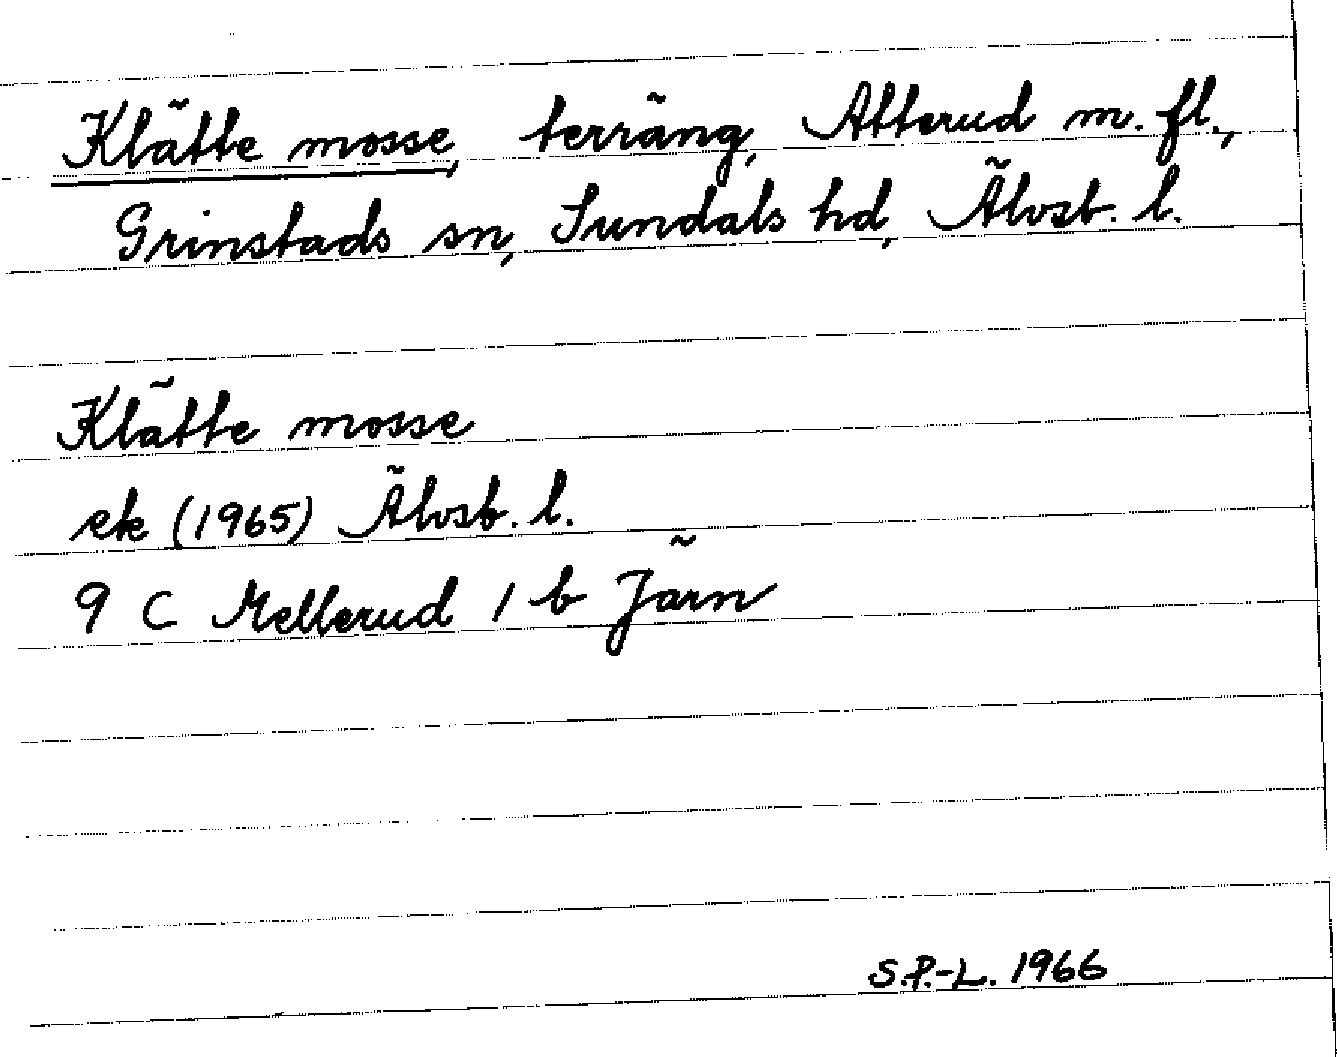 Klätte mosse, terräng, Atterud m. fl.,
Grinstads sn, Sundals hd, Älvsb. l.
Klätte mosse
ek (1965) Älvsb. l.
9 C Mellerud 1 b Järn
S.P.-L. 1966